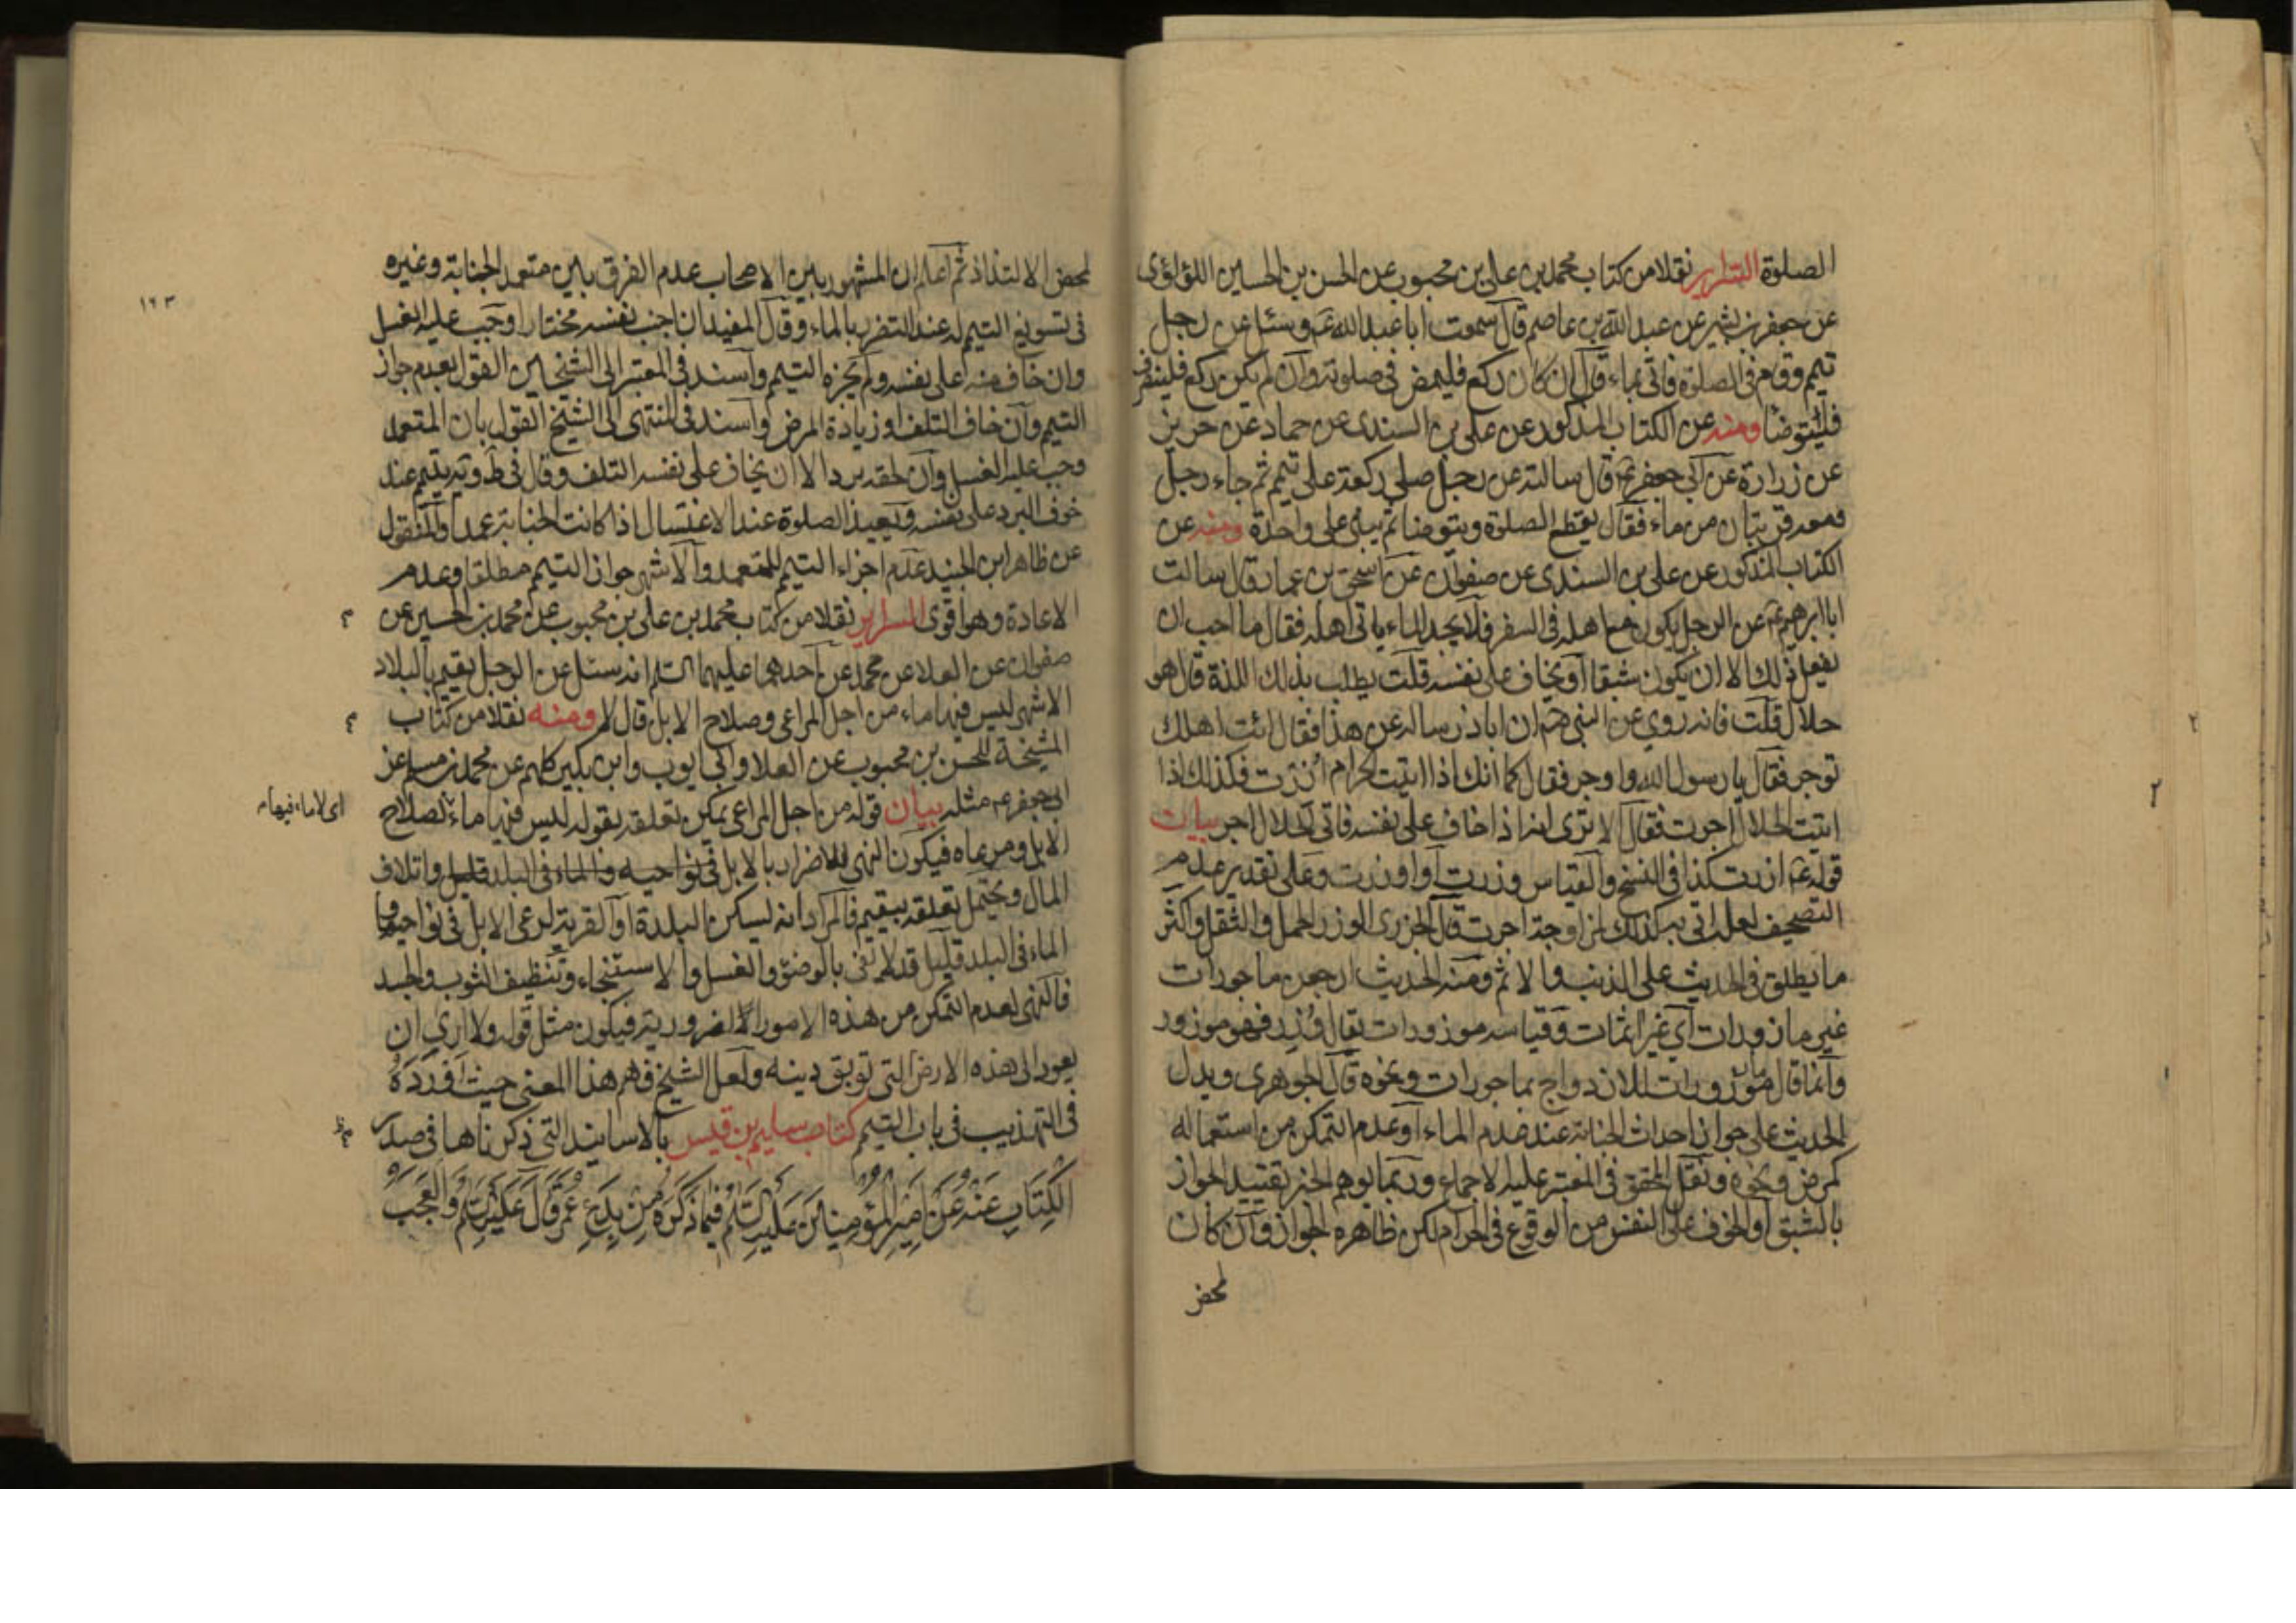 الصلوة السراير نقلا من كتاب محمد بن علي بن محبوب عن الحسن بن الحسين اللؤلؤى
عن جعفر بن بشير عن عبد الله بن عاصم قال سمعت ابا عبد الله عم وسئل عن رجل
تيمم وقام فى الصلوة فاتى بماء قال ان كان ركع فليمض فى صلوته وان لم يكن ركع فلينصرف
فليتوضأ ومنه عن الكتاب المذكور عن على بن السندى عن حماد عن حريز
عن زرارة عن ابى جعفر عم قال سالته عن رجل صلى ركعة على تيمم ثم جاء رجل
ومعه قربتان من ماء فقال يقطع الصلوة ويتوضأ ثم يبنى على واحدة ومنه عن
الكتاب المذكور عن على بن السندى عن صفوان عن اسحق بن عمار قال سالت
ابا ابرهيم عم عن الرجل يكون مع اهله فى السفر فلا يجد الماء ياتى اهله فقال ما احب ان
يفعل ذلك الا ان يكون شبقا او يخاف على نفسه قلت يطلب بذلك اللذة قال هو
حلال قلت فانه روى عن النبى صم ان اباذر ساله عن هذا فقال ائت اهلك
توجر فقال يا رسول الله واوجر فقال كما انك اذا اتيت الحرام ازرت فكذلك اذا
اتيت الحلال اجرت فقال الا ترى انه اذا خاف على نفسه فاتى الحلال اجر بيان
قوله عم ازرت كذا فى النسخ والقياس وزرت او اوزرت وعلى تقدير عدم
التصحيف لعله اتى به كذلك لمزاوجة اجرت قال الجزرى الوزر الحمل والثقل واكثر
ما يطلق فى الحديث على الذنب والاثم ومنه الحديث ارجعن ماجورات
غير مازورات اى غير اثمات وقياسه موزورات يقال وزر فهو موزور
وانما قال مازورات للازدواج بماجورات ونحوه قال الجوهرى ويدل
الحديث على جواز احداث الجنابة عند عدم الماء او عدم التمكن من استعماله
لمرض ونحوه ونقل المحقق فى المعتبر عليه الاجماع وربما يوهم الخبر تقييد الجواز
بالشبق او الخوف على النفس من الوقوع فى الحرام لكن ظاهره الجواز وان كان
لمحض
١٦٣
لمحض الالتذاذ ثم اعلم ان المشهور بين الاصحاب عدم الفرق بين متعمد الجنابة وغيره
فى تسويغ التيمم له عند التضرر بالماء وقال المفيد ان اجنب نفسه مختارا وجب عليه الغسل
وان خاف منه على نفسه ولم يجزه التيمم واسند فى المعتبر الى الشيخين القول بعدم جواز
التيمم وان خاف التلف او زيادة المرض واسند فى المنتهى الى الشيخ القول بان المتعمد
وجب عليه الغسل وان لحقه برد الا ان يخاف على نفسه التلف وقال فى ط ويه يتيمم عند
خوف البرد على نفسه ويعيد الصلوة عند الاغتسال اذا كانت الجنابة عمدا والمنقول
عن ظاهر ابن الجنيد عدم اجزاء التيمم للمتعمد والاشهر جواز التيمم مطلقا وعدم
الاعادة وهو اقوى السراير نقلا من كتاب محمد بن على بن محبوب عن محمد بن الحسين عن
صفوان عن العلا عن محمد عن احدهما عليهما السلم انه سئل عن الرجل يقيم بالبلاد
الاشهر ليس فيها ماء من اجل المراعى وصلاح الابل قال لا ومنه نقلا من كتاب
المشيخة للحسن بن محبوب عن العلا وابى ايوب وابن بكير كلهم عن محمد بن مسلم عن
ابى جعفر عم مثله بيان قوله من اجل المراعى يمكن تعلقه بقوله ليس فيها ماء لصلاح
اى لا ماء فيها م
الابل ومرعاه فيكون النهى للاضرار بالابل فى نواحيه والماء فى البلد قليل واتلاف
المال ويحتمل تعلقه بيقيم فالمراد انه ليسكن البلدة او القرية لرعى الابل فى نواحيها و
الماء فى البلد قليل قد لا يفى بالوضوء والغسل والاستنجاء وتنظيف الثوب والجسد
فالنهى لعدم التمكن من هذه الامور الضرورية فيكون مثل قوله ولا ارى ان
يعود الى هذه الارض التى توبق دينه ولعل الشيخ فهم هذا المعنى حيث اورده
فى التهذيب فى باب التيمم كتاب سليم بن قيس بالاسانيد التى ذكرناها فى صدر
الكتاب عنه عن امير المؤمنين عليه السلم فيما ذكره من بدع عمر قال عليه السلم والعجب